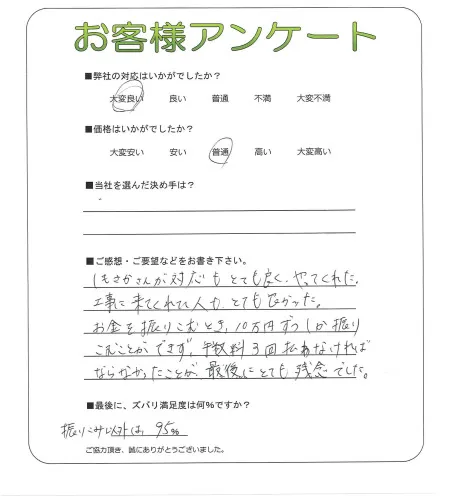 お客様アンケート
■弊社の対応はいかがでしたか？
大変良い 良い 普通 不満 大変不満
■価格はいかがでしたか？
大変安い 安い 普通 高い 大変高い
■当社を選んだ決め手は？
■ご感想・ご要望などをお書き下さい。
しもさかさんが対応もとても良く、やってくれた。
工事に来てくれた人もとても良かった。
お金を振りこむとき、10万円ずつしか振り
こむことができず、手数料3回払わなければ
ならなかったことが最後にとても残念でした。
■最後に、ズバリ満足度は何%ですか？
振りこみ以外は、95%
ご協力頂き、誠にありがとうございました。